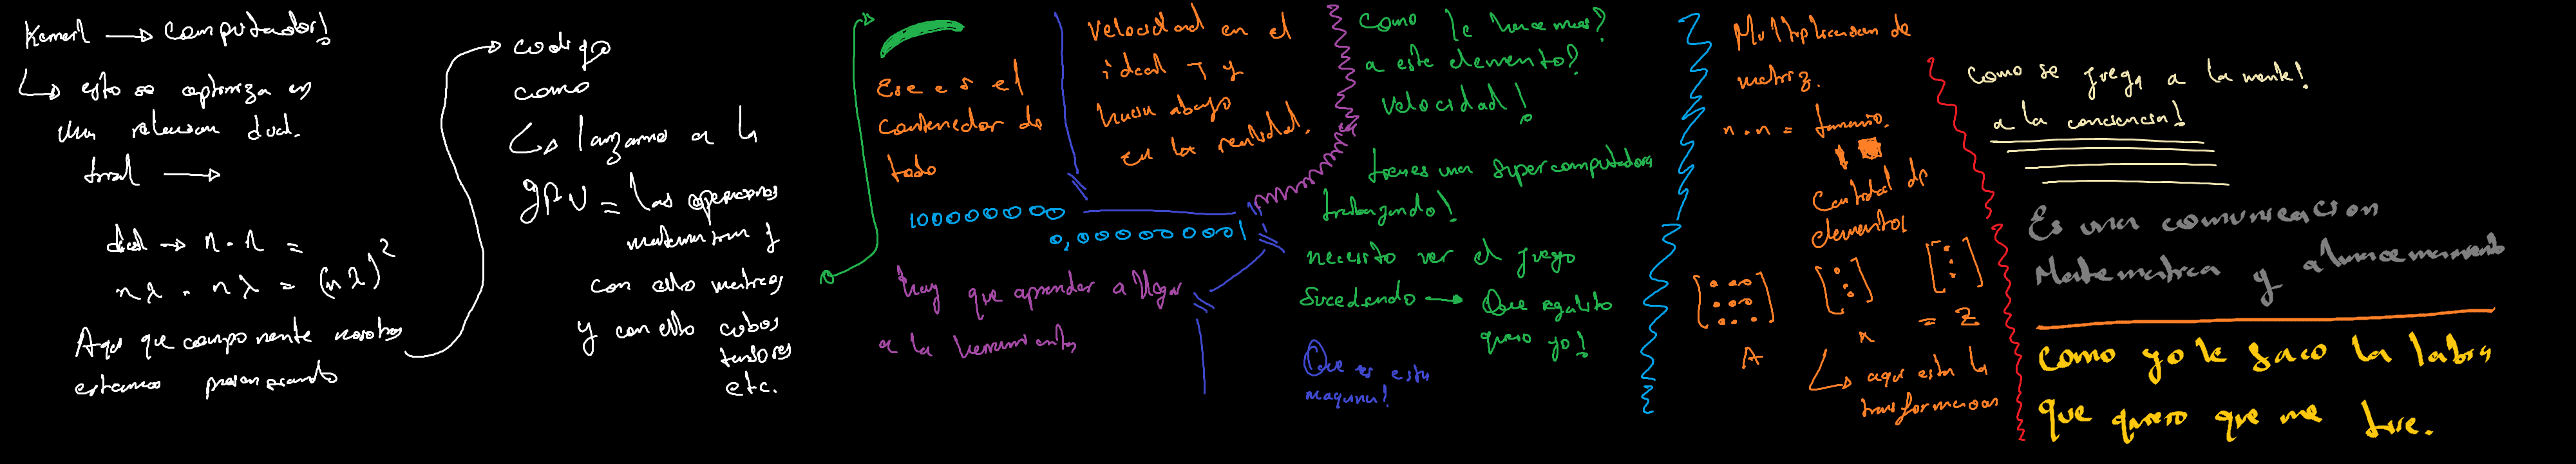 Kernel → computador!
↳ esto se optimiza en
una relacion dual.
dual → n · n =
nλ · nλ = (nλ)²
Aqui que componente nosotros
estamos
codigo
como
↳ lanzamo a la
gpu = las operaciones
con ello matrices
y con ello cubos
tensores
etc.
Ese es el
contenedor de
todo
Velocidad en el
ideal y
hacia abajo
en la realidad.
1000000000
0,000000001
hay que aprender a llegar
a la herramienta
Como le hacemos?
a este elemento?
Velocidad!
tienes una supercomputadora
trabajando!
necesito ver el juego
sucediendo → Que
quiero yo!
Que es esta
maquina!
Multiplicacion de
matriz.
n · n = tamaño.
Cantidad de
elementos
= Z
A x
↳ aqui esta la
transformacion
Como se juega a la mente!
a la conciencia!
Es una comunicacion
Matematica y almacenamiento
como yo le saco la
que quiero que me